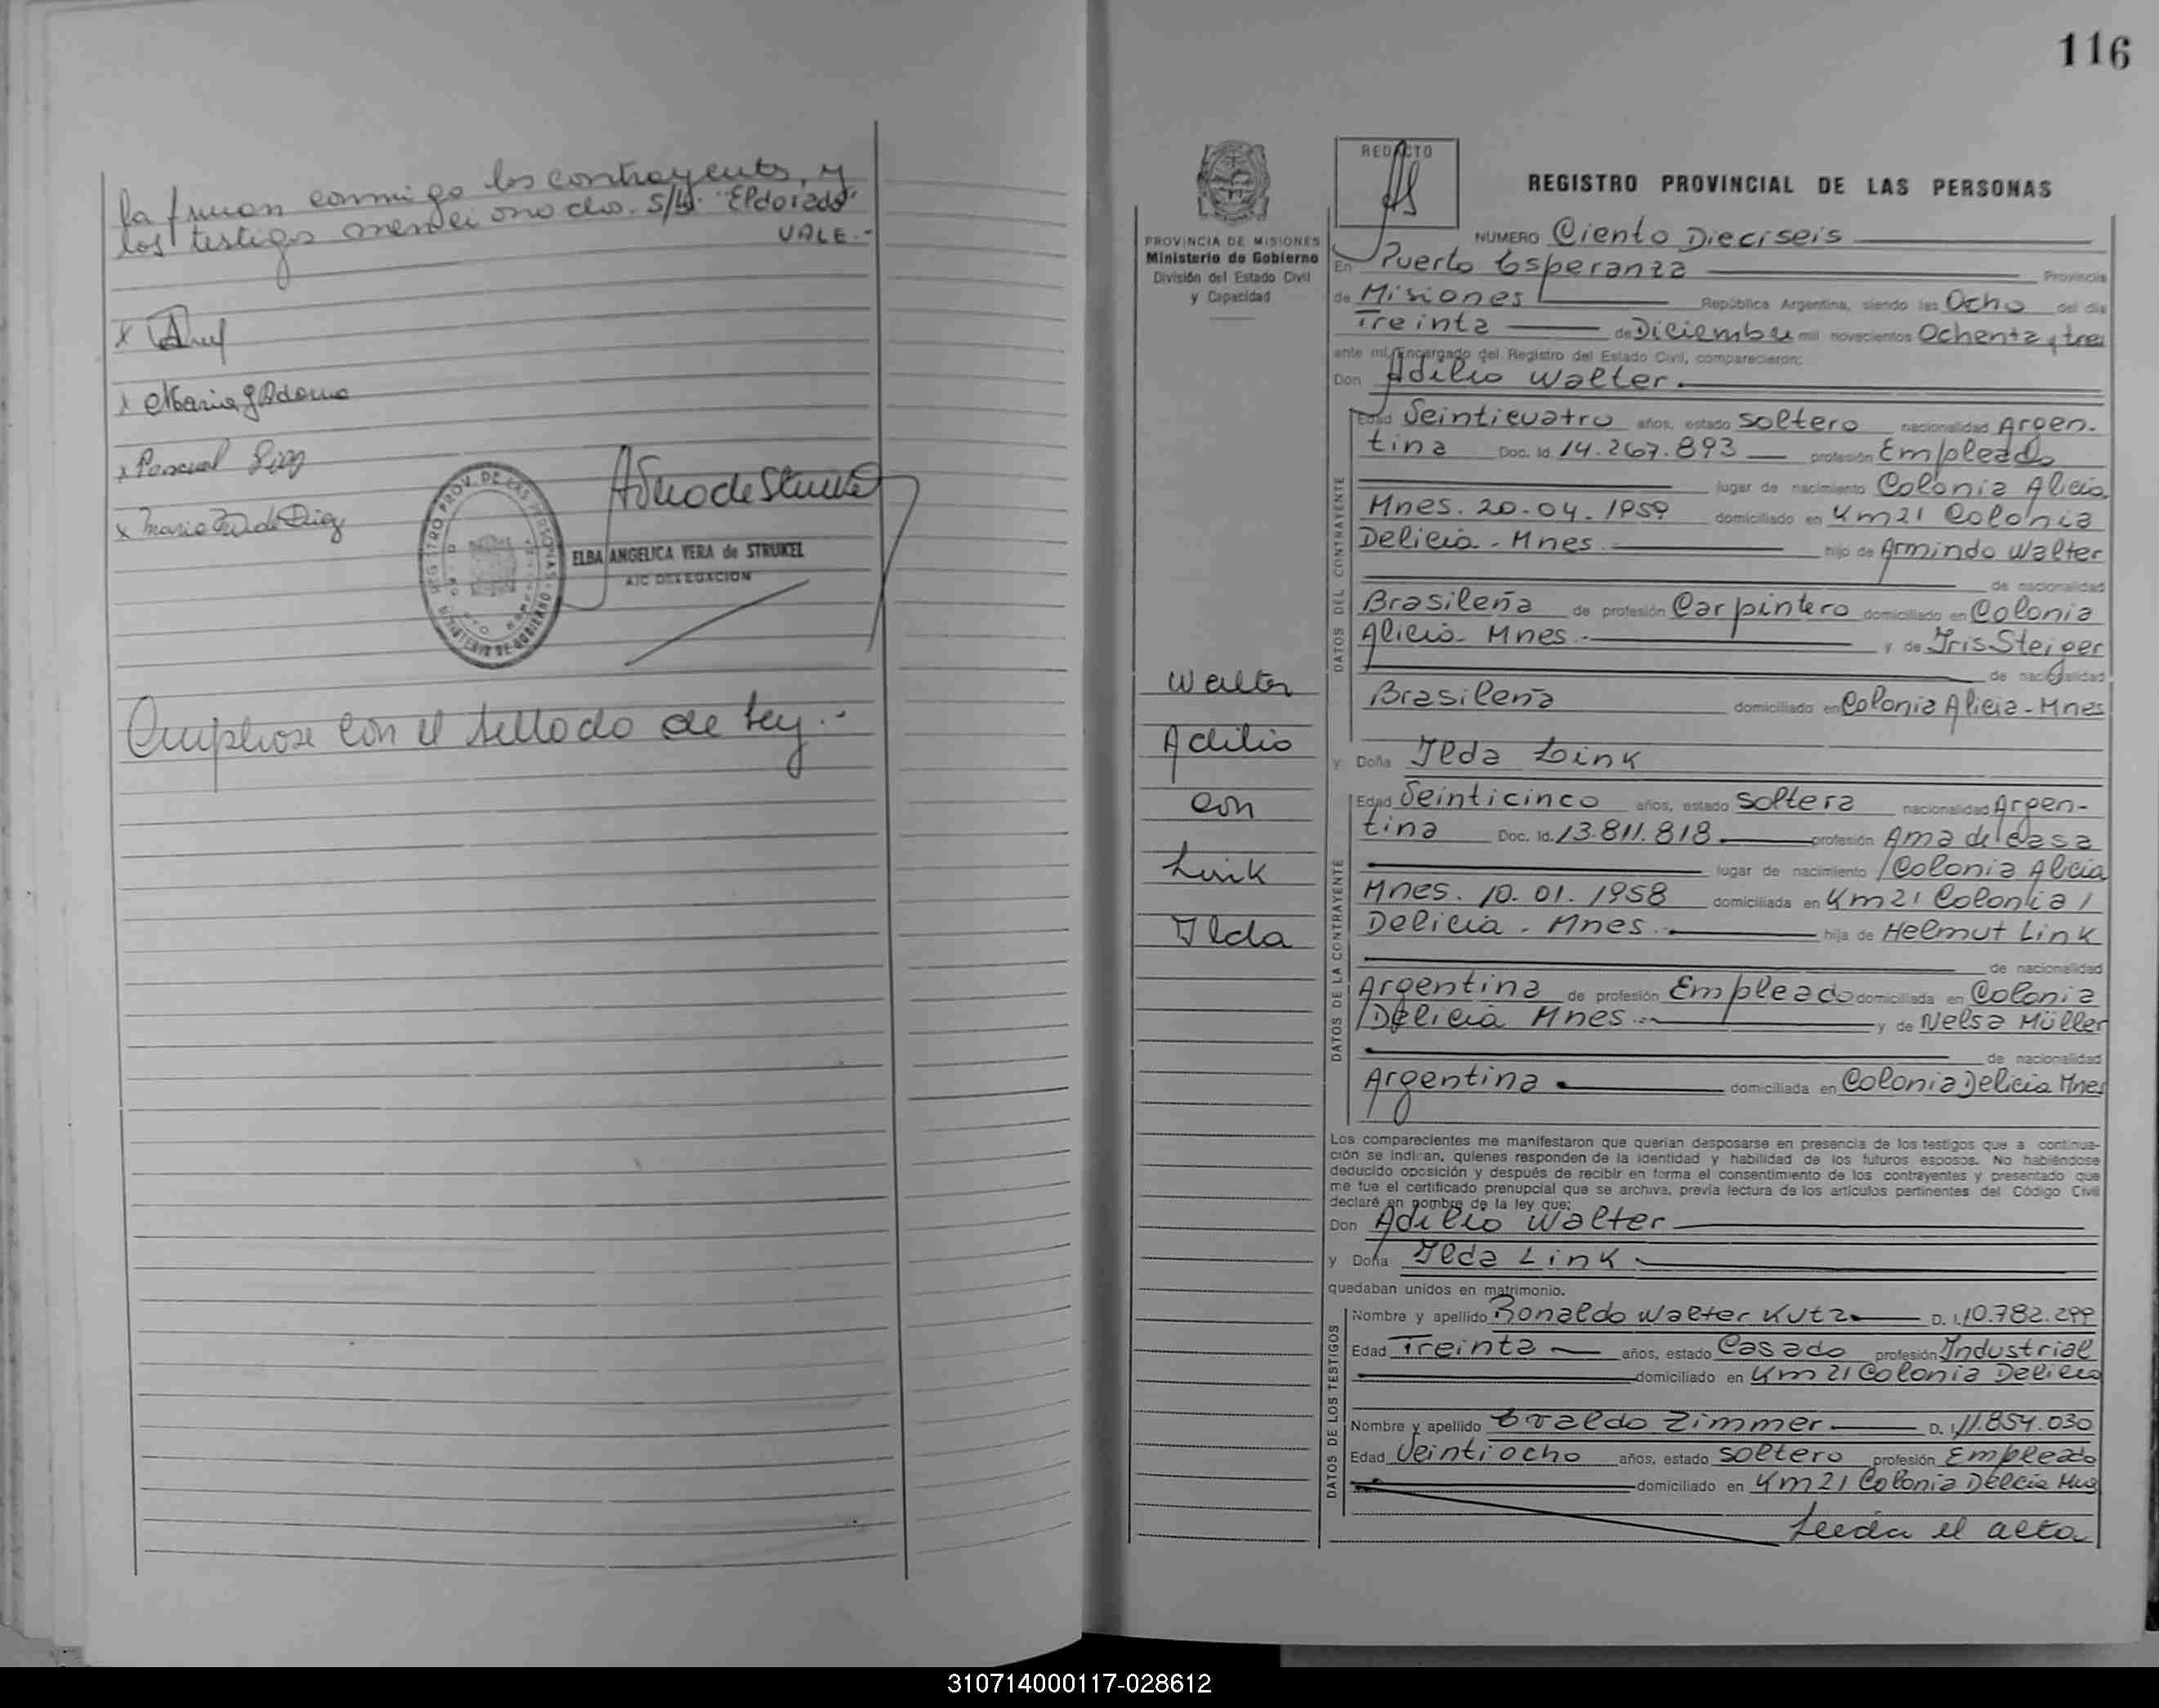 la firman conmigo los contrayents, y
los testigos mencionado. S/b. "Eldorado"
VALE.-
x
x Maria G Adorno
x Pascual
x Maria de
ELBA ANGELICA VERA de STRUKEL
A/C DELEGACION
Cumpliose con el sellado de Ley.-
116
REDACTO
REGISTRO PROVINCIAL DE LAS PERSONAS
PROVINCIA DE MISIONES
Ministerio de Gobierno
División del Estado Civil
y Capacidad
NUMERO Ciento Dieciseis
En Puerto Esperanza Provincia
de Misiones República Argentina, siendo las Ocho del día
Treinta de Diciembre mil novecientos Ochenta y tres
ante mí, Encargado del Registro del Estado Civil, comparecieron:
Don Adilio Walter.
DATOS DEL CONTRAYENTE
Edad Veinticuatro años, estado Soltero nacionalidad Argen-
tina Doc. Id. 14.267.893 profesión Empleado
lugar de nacimiento Colonia Alicia
Mnes. 20-04. 1959 domiciliado en Km 21 Colonia
Delicia - Mnes hijo de Armindo Walter
de nacionalidad
Brasileña de profesión Carpintero domiciliado en Colonia
Alicia Mnes.- y de Iris Steiger
de nacionalidad
Brasileña domiciliado en Colonia Alicia - Mnes
Walter
Adilio
con
Link
Ilda
y Doña Ilda Link
DATOS DE LA CONTRAYENTE
Edad Veinticinco años, estado Soltera nacionalidad Argen-
tina Doc. Id. 13.811.818 profesión Ama de Casa
lugar de nacimiento Colonia Alicia
Mnes. 10. 01. 1958 domiciliada en Km 21 Colonia
Delicia - Mnes.- hija de Helmut Link
de nacionalidad
Argentina de profesión Empleado domiciliada en Colonia
Delicia Mnes.- y de Nelsa Müller
de nacionalidad
Argentina domiciliada en Colonia Delicia Mnes
Los comparecientes me manifestaron que querían desposarse en presencia de los testigos que a continua-
ción se indican, quienes responden de la identidad y habilidad de los futuros esposos. No habiéndose
deducido oposición y después de recibir en forma el consentimiento de los contrayentes y presentado que
me fue el certificado prenupcial que se archiva, previa lectura de los artículos pertinentes del Código Civil
declaré en nombre de la ley que:
Don Adilio Walter
y Doña Ilda Link
quedaban unidos en matrimonio.
DATOS DE LOS TESTIGOS
Nombre y apellido Ronaldo Walter Kutz D. I. 10.782.299
Edad Treinta años, estado Casado profesión Industrial
domiciliado en Km 21 Colonia Delicia
Nombre y apellido Eraldo Zimmer D. I. 11.854.030
Edad Veintiocho años, estado Soltero profesión Empleado
domiciliado en Km 21 Colonia Delicia Mns
Leída el acta
310714000117-028612